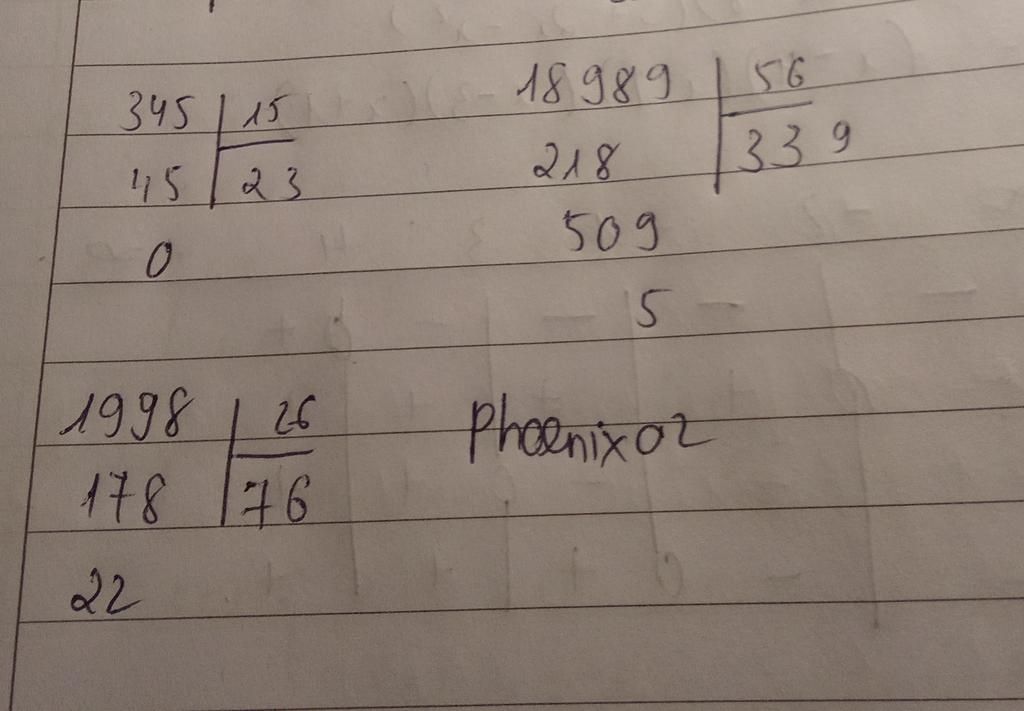 345 15
45 23
0
18989 56
218 339
509
5
1998 26
178 76
22
Phoenix02